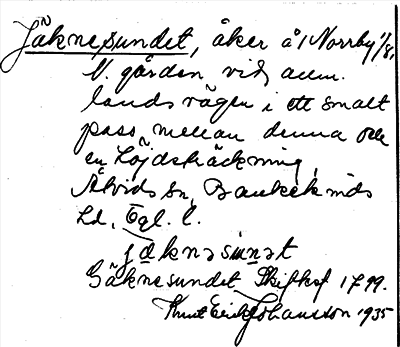 Jäknesundet, åker å 1 Norrby 1/8,
V. gården vid allm.
landsvägen i ett smalt
pass mellan denna och
en höjdsträckning,
Åtvids sn, Bankekinds
hd, Ögl. l.
jäknəsun̲ət
Gäknesundet Skifteskf 1799.
Knut Erik Johansson 1935